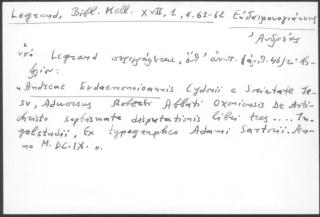 Legrand, Bibl. Hell. XVII, 1, σ. 61-62 Εὐδαιμονογιάννης
Ἀνδρέας
Legrand
"Andreae Eudaemonoioannis Cydonii e Societate Je-
su, Adversus Roberti Abbati Oxoniensis De Anti-
christo sophismata disputationis libri tres .... In-
golstadii, Ex typographeo Adami Sartorii. An-
no M.DC.IX. ".